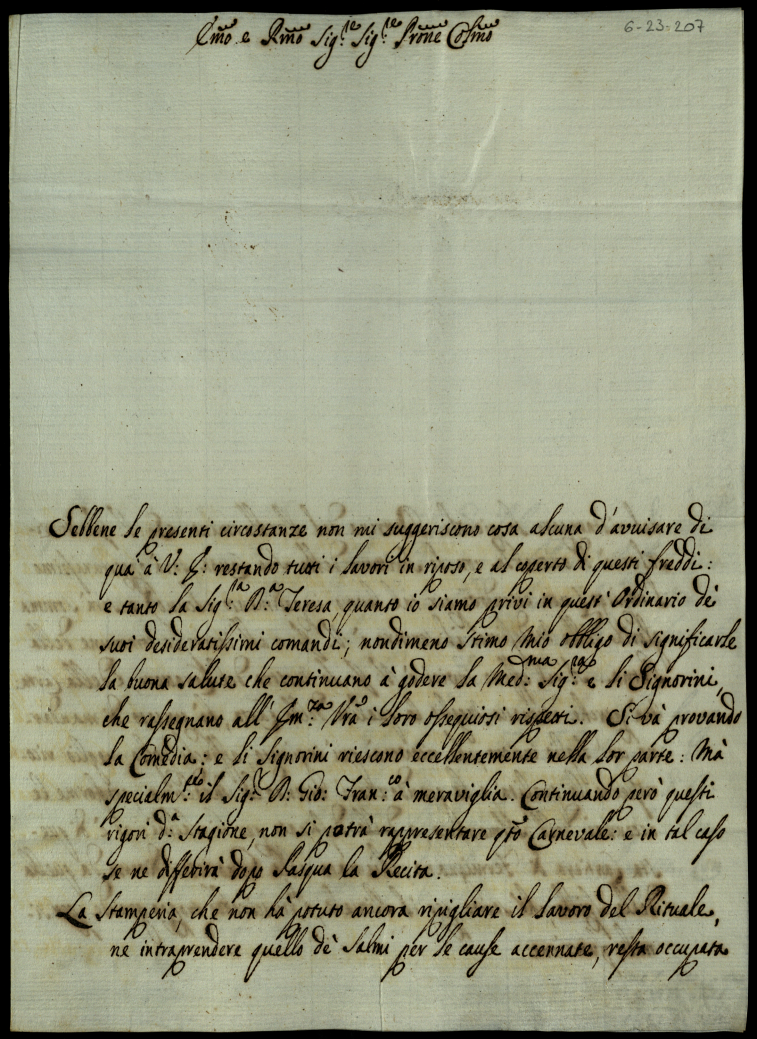 6-23-207
Emo e Rmo Sig.re Sig.re Prone Colmo
Sebbene le presenti circostanze non mi suggeriscono cosa alcuna d'avvisare di
quà à V: E: restando tutti i lavori in riposo, e al coperto di questi freddi:
e tanto la Sig.ra D.a Teresa, quanto io siamo privi in quest'Ordinario dè
suoi desideratissimi comandi; nondimeno stimo mio obbligo di significarle
la buona salute che continuano à godere la Med:ma Sig.ra e li Signorini,
che rassegnano all'Em:za Vra i loro ossequiosi rispetti. Si và provando
la Comedia: e li Signorini riescono eccellentemente nella lor parte: Mà
specialm:te il Sig.r D: Gio: Fran:co à meraviglia. Continuando però questi
rigori d:a Stagione, non si potrà rappresentare qto Carnevale: e in tal caso
se ne differirà dopo Pasqua la Recita.
La Stamperia, che non hà potuto ancora ripigliare il lavoro del Rituale,
ne intraprendere quello dè Salmi per le cause accennate, resta occupata